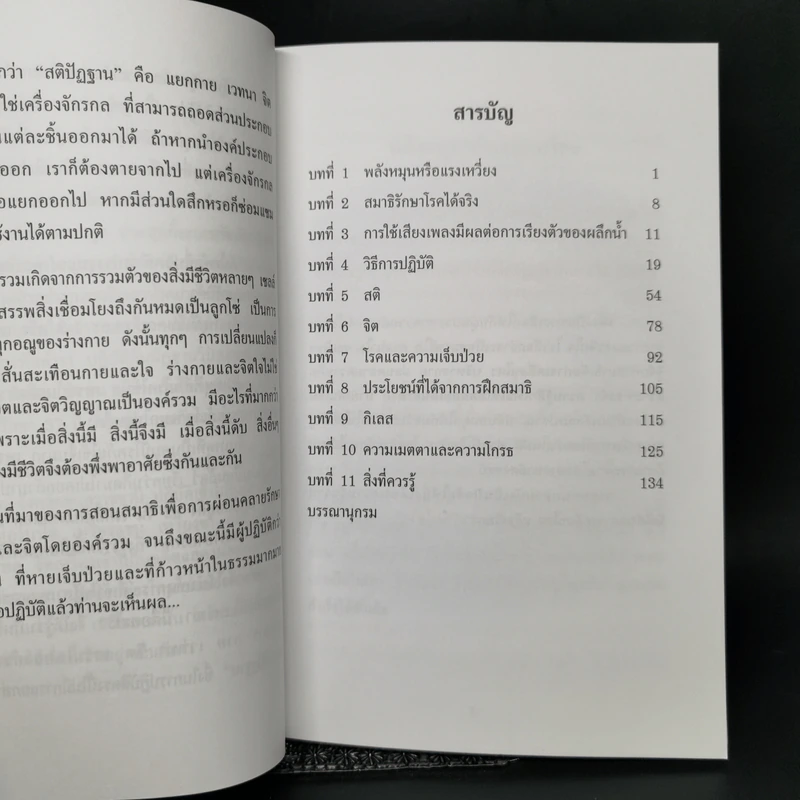 กว่า “สติปัฏฐาน” คือ แยกกาย เวทนา จิต
ใช่เครื่องจักรกล ที่สามารถถอดส่วนประกอบ
แต่ละชิ้นออกมาได้ ถ้าหากนำองค์ประกอบ
ออก เราก็ต้องตายจากไป แต่เครื่องจักรกล
แยกออกไป หากมีส่วนใดสึกหรอก็ซ่อมแซม
งานได้ตามปกติ
รวมเกิดจากการรวมตัวของสิ่งมีชีวิตหลายๆ เซลล์
สรรพสิ่งเชื่อมโยงถึงกันหมดเป็นลูกโซ่ เป็นการ
ทุกอณูของร่างกาย ดังนั้นทุกๆ การเปลี่ยนแปลงก็
สั่นสะเทือนกายและใจ ร่างกายและจิตใจไม่ใช่
และจิตวิญญาณเป็นองค์รวม มีอะไรที่มากกว่า
เพราะเมื่อสิ่งนี้มี สิ่งนี้จึงมี เมื่อสิ่งนี้ดับ สิ่งอื่นๆ
มีชีวิตจึงต้องพึ่งพาอาศัยซึ่งกันและกัน
ที่มาของการสอนสมาธิเพื่อการผ่อนคลายรักษา
และจิตโดยองค์รวม จนถึงขณะนี้มีผู้ปฏิบัติกว่า
ที่หายเจ็บป่วยและที่ก้าวหน้าในธรรมมากมาย
ปฏิบัติแล้วท่านจะเห็นผล...
สารบัญ
บทที่ 1 พลังหมุนหรือแรงเหวี่ยง 1
บทที่ 2 สมาธิรักษาโรคได้จริง 8
บทที่ 3 การใช้เสียงเพลงมีผลต่อการเรียงตัวของผลึกน้ำ 11
บทที่ 4 วิธีการปฏิบัติ 19
บทที่ 5 สติ 54
บทที่ 6 จิต 78
บทที่ 7 โรคและความเจ็บป่วย 92
บทที่ 8 ประโยชน์ที่ได้จากการฝึกสมาธิ 105
บทที่ 9 กิเลส 115
บทที่ 10 ความเมตตาและความโกรธ 125
บทที่ 11 สิ่งที่ควรรู้ 134
บรรณานุกรม